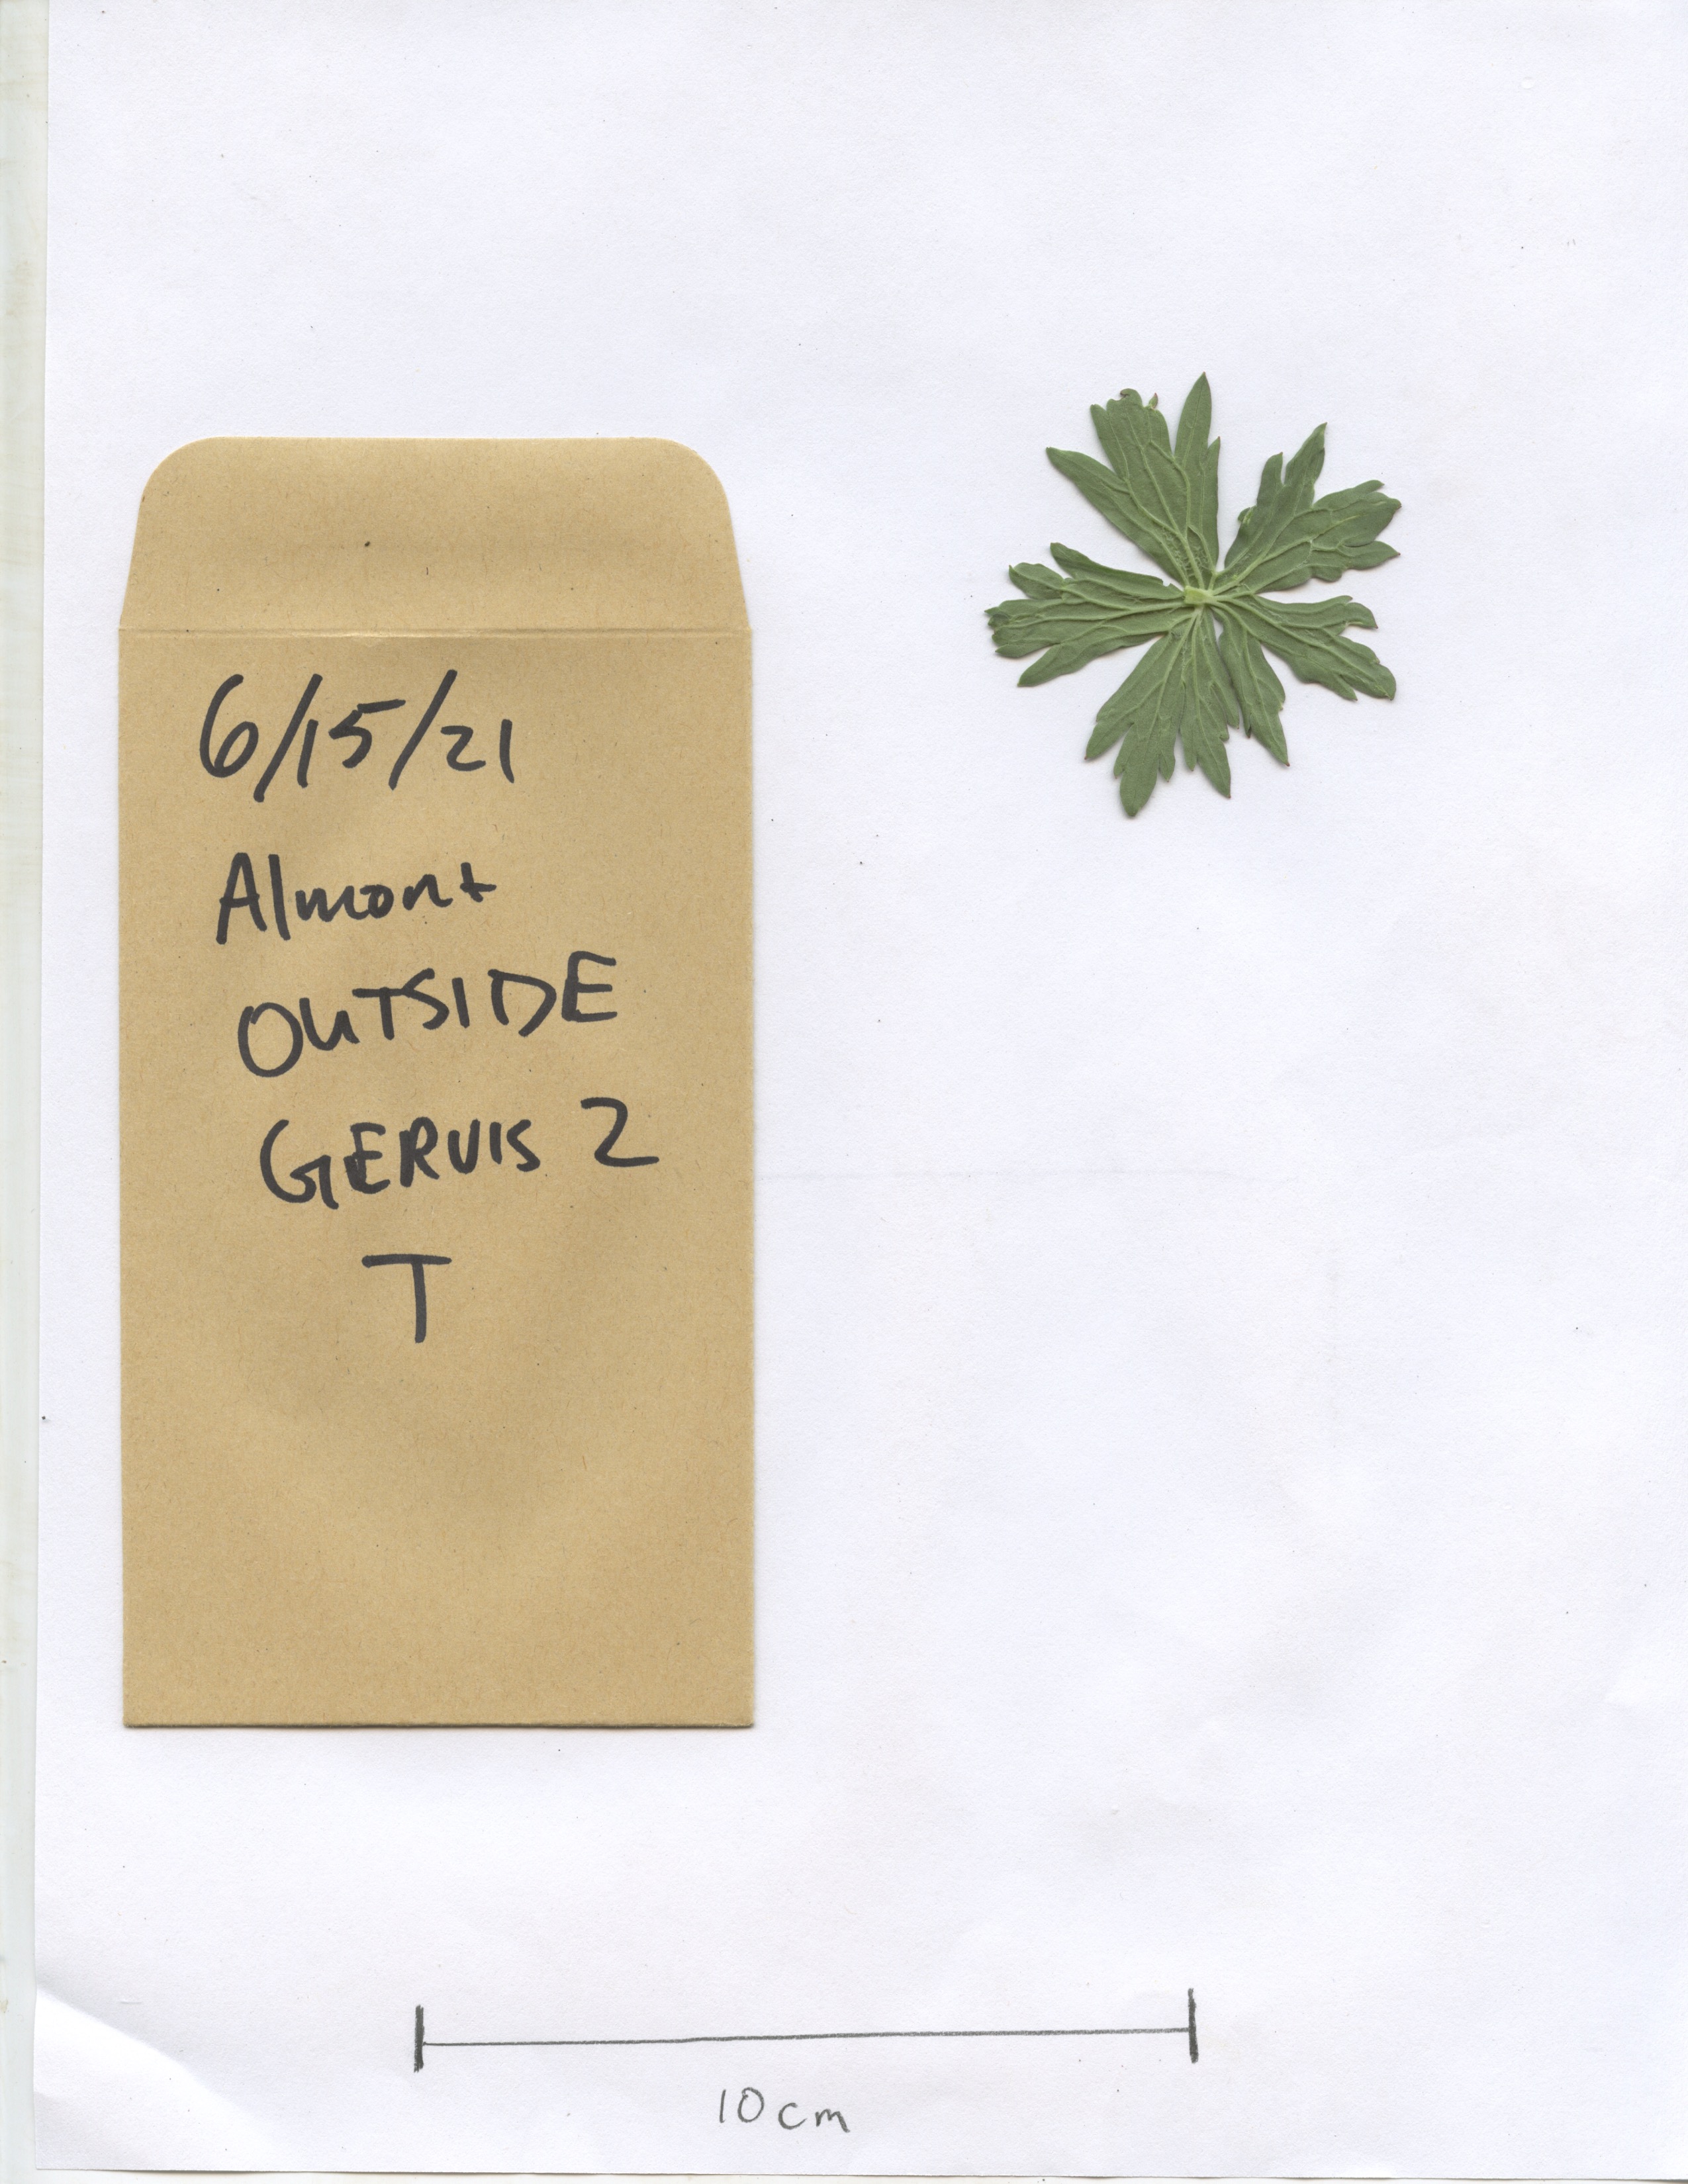 6/15/21
Almont
OUTSIDE
GERVIS 2
T
10cm